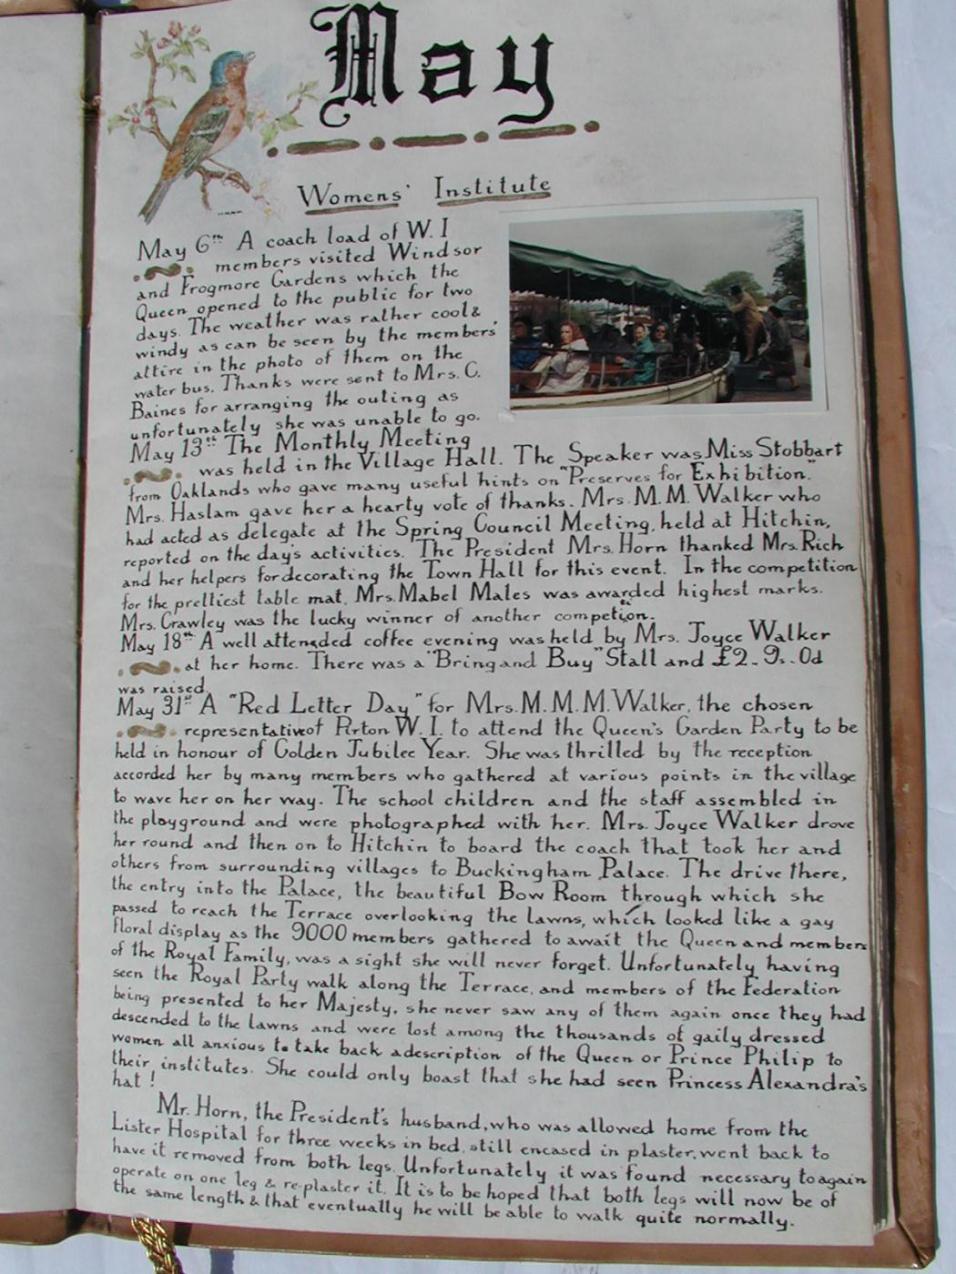 May
Womens' Institute
May 6th A coach load of W.I
members visited Windsor
and Frogmore Gardens which the
Queen opened to the public for two
days. The weather was rather cool &
windy as can be seen by the members'
attire in the photo of them on the
water bus. Thanks were sent to Mrs. C.
Baines for arranging the outing as
unfortunately she was unable to go.
May 13th The Monthly Meeting
was held in the Village Hall. The Speaker was Miss Stobbart
from Oaklands who gave many useful hints on "Preserves for Exhibition."
Mrs. Haslam gave her a hearty vote of thanks. Mrs. M.M. Walker who
had acted as delegate at the Spring Council Meeting, held at Hitchin,
reported on the day's activities. The President Mrs. Horn thanked Mrs. Rich
and her helpers for decorating the Town Hall for this event. In the competition
for the prettiest table mat, Mrs. Mabel Males was awarded highest marks.
Mrs. Crawley was the lucky winner of another competition.
May 18th A well attended coffee evening was held by Mrs. Joyce Walker
at her home. There was a "Bring and Buy" Stall and £2-9s.-0d
was raised.
May 31st A "Red Letter Day" for Mrs. M.M.M. Walker, the chosen
representative of Pirton W.I. to attend the Queen's Garden Party to be
held in honour of Golden Jubilee Year. She was thrilled by the reception
accorded her by many members who gathered at various points in the village
to wave her on her way. The school children and the staff assembled in
the playground and were photographed with her. Mrs. Joyce Walker drove
her round and then on to Hitchin to board the coach that took her and
others from surrounding villages to Buckingham Palace. The drive there,
the entry into the Palace, the beautiful Bow Room through which she
passed to reach the Terrace overlooking the lawns, which looked like a gay
floral display as the 9000 members gathered to await the Queen and members
of the Royal Family, was a sight she will never forget. Unfortunately having
seen the Royal Party walk along the Terrace, and members of the Federation
being presented to her Majesty, she never saw any of them again once they had
descended to the lawns and were lost among the thousands of gaily dressed
women all anxious to take back a description of the Queen or Prince Philip to
their institutes. She could only boast that she had seen Princess Alexandra's
hat!
Mr. Horn, the President's husband, who was allowed home from the
Lister Hospital for three weeks in bed, still encased in plaster, went back to
have it removed from both legs. Unfortunately it was found necessary to again
operate on one leg & re-plaster it. It is to be hoped that both legs will now be of
the same length & that eventually he will be able to walk quite normally.